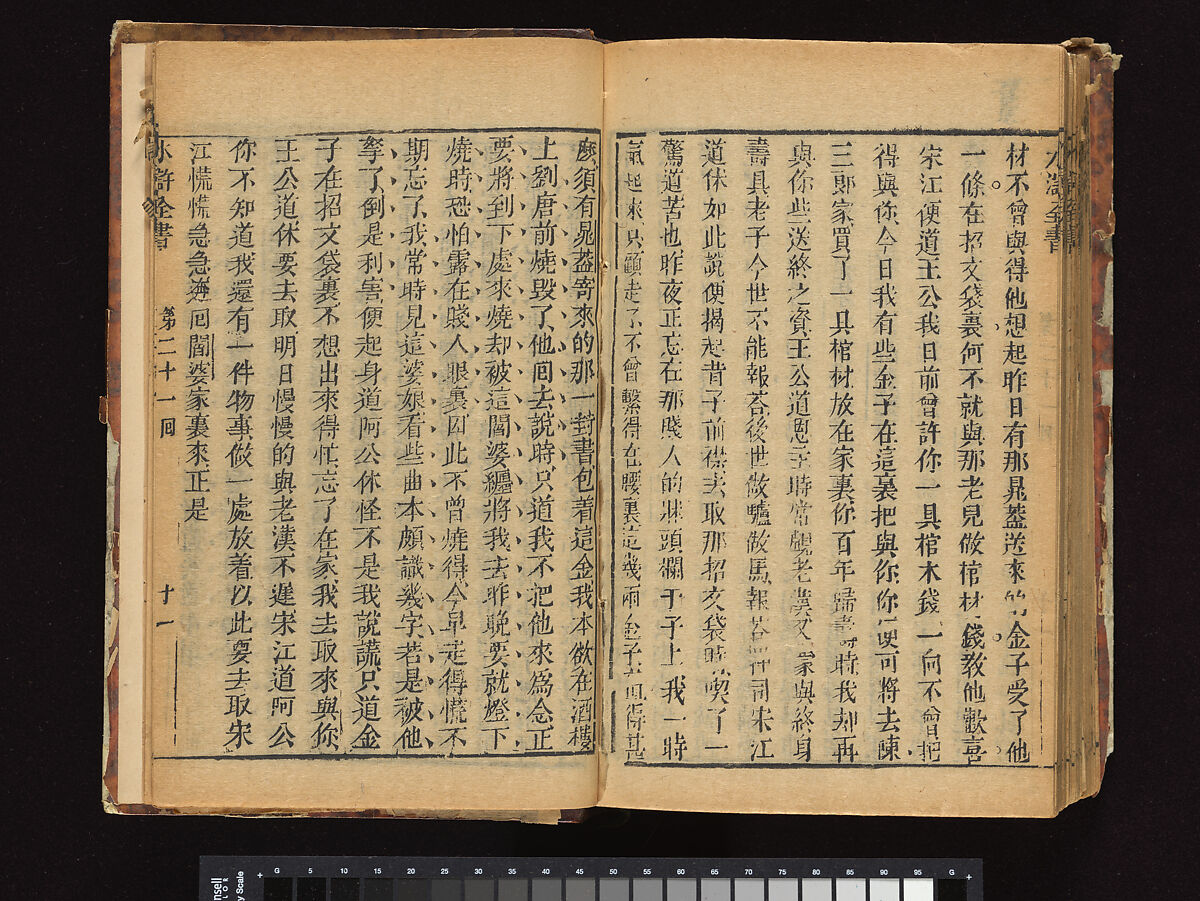 水滸全書
材不曾與得他想起昨日有那晁蓋送來的金子受了他
一條在招文袋裏何不就與那老兒做棺材錢教他歡喜
宋江便道王公我日前曾許你一具棺木錢一向不曾把
得與你今日我有些金子在這裏把與你你便可將去陳
三郎家買了一具棺材放在家裏你百年歸壽時我却再
與你些送終之資王公道恩主時常覷老漢又蒙與終身
壽具老子今世不能報荅後世做驢做馬報荅押司宋江
道休如此說便揭起背子前襟去取那招文袋時喫了一
驚道苦也昨夜正忘在那賤人的牀頭欄干子上我一時
氣起來只顧走了不曾繫得在腰裏這幾兩金子直得甚
麽須有晁蓋寄來的那一封書包着這金我本欲在酒樓
上劉唐前燒毀了他囘去說時只道我不把他來爲念正
要將到下處來燒却被這閻婆纏將我去昨晚要就燈下
燒時恐怕露在賤人眼裏因此不曾燒得今早走得慌不
期忘了我常時見這婆娘看些曲本頗識幾字若是被他
拏了倒是利害便起身道阿公休怪不是我說謊只道金
子在招文袋裏不想出來得忙忘了在家我去取來與你
王公道休要去取明日慢慢的與老漢不遲宋江道阿公
你不知道我還有一件物事做一處放着以此要去取宋
江慌慌急急奔囘閻婆家裏來正是
水滸全書 第二十一囘 十一